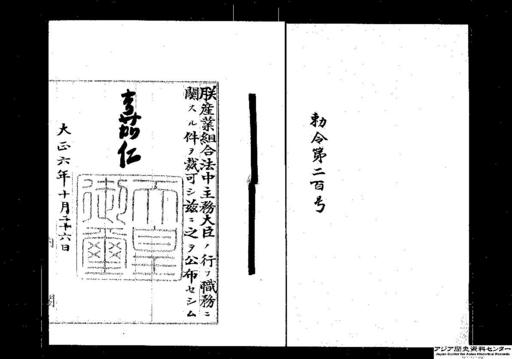 勅令第二百号
朕産業組合法中主務大臣ノ行フ職務ニ
関スル件ヲ裁可シ茲ニ之ヲ公布セシム
嘉仁
天皇
御璽
大正六年十月二十六日
アジア歴史資料センター
Japan Center for Asian Historical Records